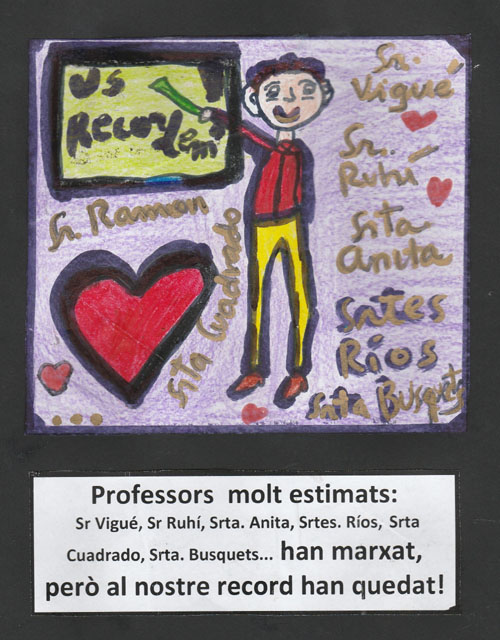 Us
Recordem
Sr. Vigué
Sr. Ruhí
Srta
Anita
Srtes
Ríos
Srta Busquets
Sr. Ramon
Srta Cuadrado
...
Professors molt estimats:
Sr Vigué, Sr Ruhí, Srta. Anita, Srtes. Ríos, Srta
Cuadrado, Srta. Busquets... han marxat,
però al nostre record han quedat!